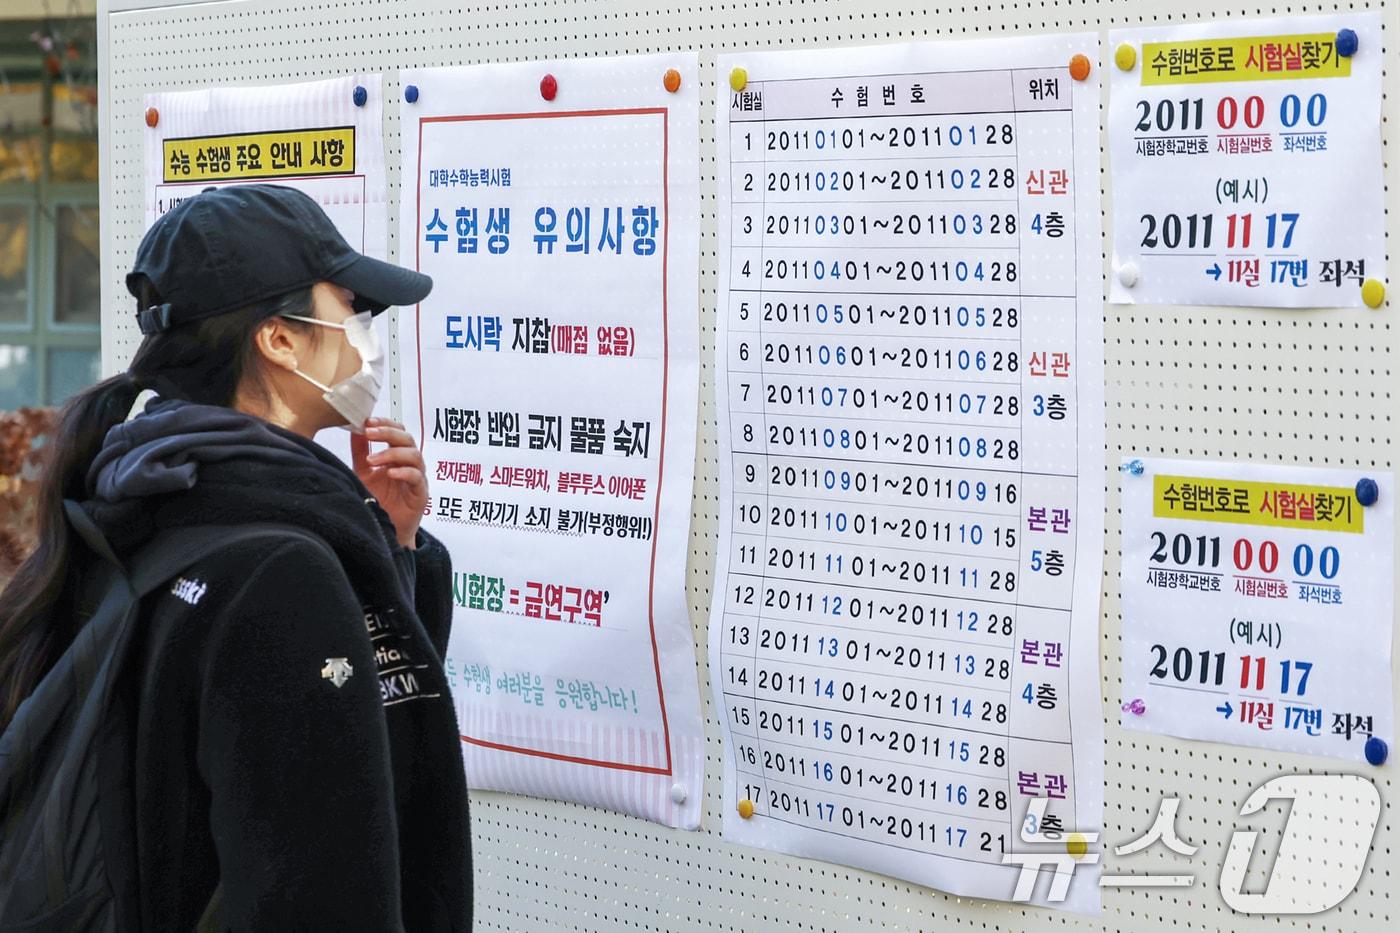 수능 수험생 주요 안내 사항
대학수학능력시험
수험생 유의사항
도시락 지참(매점 없음)
시험장 반입 금지 물품 숙지
전자담배, 스마트워치, 블루투스 이어폰
등 모든 전자기기 소지 불가(부정행위!)
시험장 = 금연구역'
수험생 여러분을 응원합니다!
시험실 수 험 번 호 위치
1 20110101~20110128
2 20110201~20110228 신관
3 20110301~20110328 4층
4 20110401~20110428
5 20110501~20110528
6 20110601~20110628 신관
7 20110701~20110728 3층
8 20110801~20110828
9 20110901~20110916
10 20111001~20111015 본관
11 20111101~20111128 5층
12 20111201~20111228
13 20111301~20111328 본관
14 20111401~20111428 4층
15 20111501~20111528
16 20111601~20111628 본관
17 20111701~20111721 3층
수험번호로 시험실찾기
2011 00 00
시험장학교번호 시험실번호 좌석번호
(예시)
2011 11 17
→ 11실 17번 좌석
수험번호로 시험실찾기
2011 00 00
시험장학교번호 시험실번호 좌석번호
(예시)
2011 11 17
→ 11실 17번 좌석
뉴스1